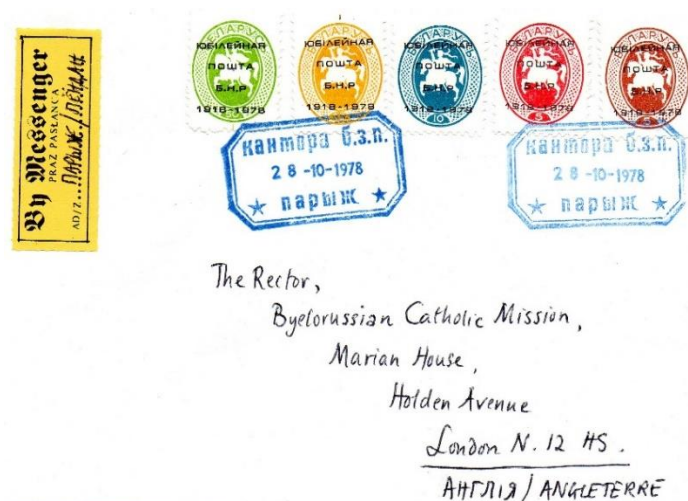 By Messenger
PRAZ PASŁANCA
AD/Z..ПАРЫЖ/ЛЁНДАН
БЕЛАРУСЬ
ЮБІЛЕЙНАЯ
ПОШТА
Б.Н.Р
1918-1978
БЕЛАРУСЬ
ЮБІЛЕЙНАЯ
ПОШТА
Б.Н.Р
1918-1978
БЕЛАРУСЬ
ЮБІЛЕЙНАЯ
ПОШТА
Б.Н.Р
1918-1978
10
БЕЛАРУСЬ
ЮБІЛЕЙНАЯ
ПОШТА
Б.Н.Р
1918-1978
5
БЕЛАРУСЬ
ЮБІЛЕЙНАЯ
ПОШТА
Б.Н.Р
1918-1978
кантора б.з.п.
28-10-1978
парыж
кантора б.з.п.
28-10-1978
парыж
The Rector,
Byelorussian Catholic Mission,
Marian House,
Holden Avenue
London N. 12 HS.
АНГЛІЯ/ANGLETERRE